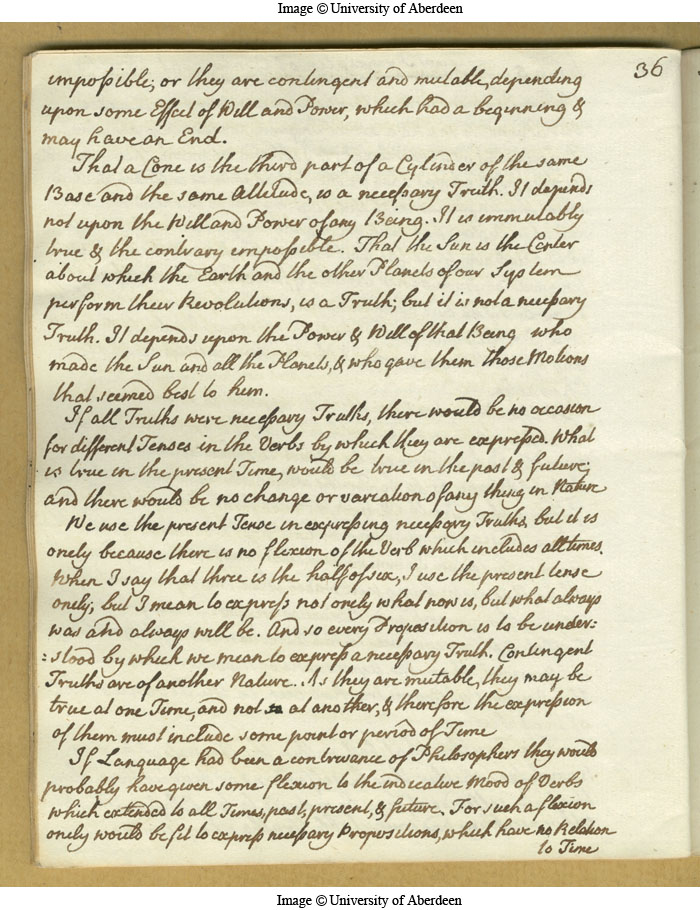 Image © University of Aberdeen
36
impossible; or they are contingent and mutable, depending
upon some Effect of Will and Power, which had a beginning &
may have an End.
That a Cone is the third part of a Cylinder of the same
Base and the same Altitude, is a necessary Truth. It depends
not upon the Will and Power of any Being. It is immutably
true & the contrary impossible. That the Sun is the Center
about which the Earth and the other Planets of our System
perform their Revolutions, is a Truth; but it is not a necessary
Truth. It depends upon the Power & Will of that Being who
made the Sun and all the Planets, & who gave them those Motions
that seemed best to him.
If all Truths were necessary Truths, there would be no occasion
for different Tenses in the Verbs by which they are expressed. What
is true in the present Time, would be true in the past & future;
and there would be no change or variation of any thing in Nature
We use the present Tense in expressing necessary Truths, but it is
onely because there is no flexion of the Verb which includes all times.
When I say that three is the half of six, I use the present tense
onely; but I mean to express not onely what now is, but what always
was and always will be. And so every Proposition is to be under:
:stood by which we mean to express a necessary Truth. Contingent
Truths are of another Nature. As they are mutable, they may be
true at one Time, and not at another, & therefore the expression
of them must include some point or period of Time
If Language had been a contrivance of Philosophers they would
probably have given some flexion to the indicative Mood of Verbs
which extended to all Times, past, present, & future. For such a flexion
onely would be fit to express necessary Propositions, which have no Relation
to Time
Image © University of Aberdeen